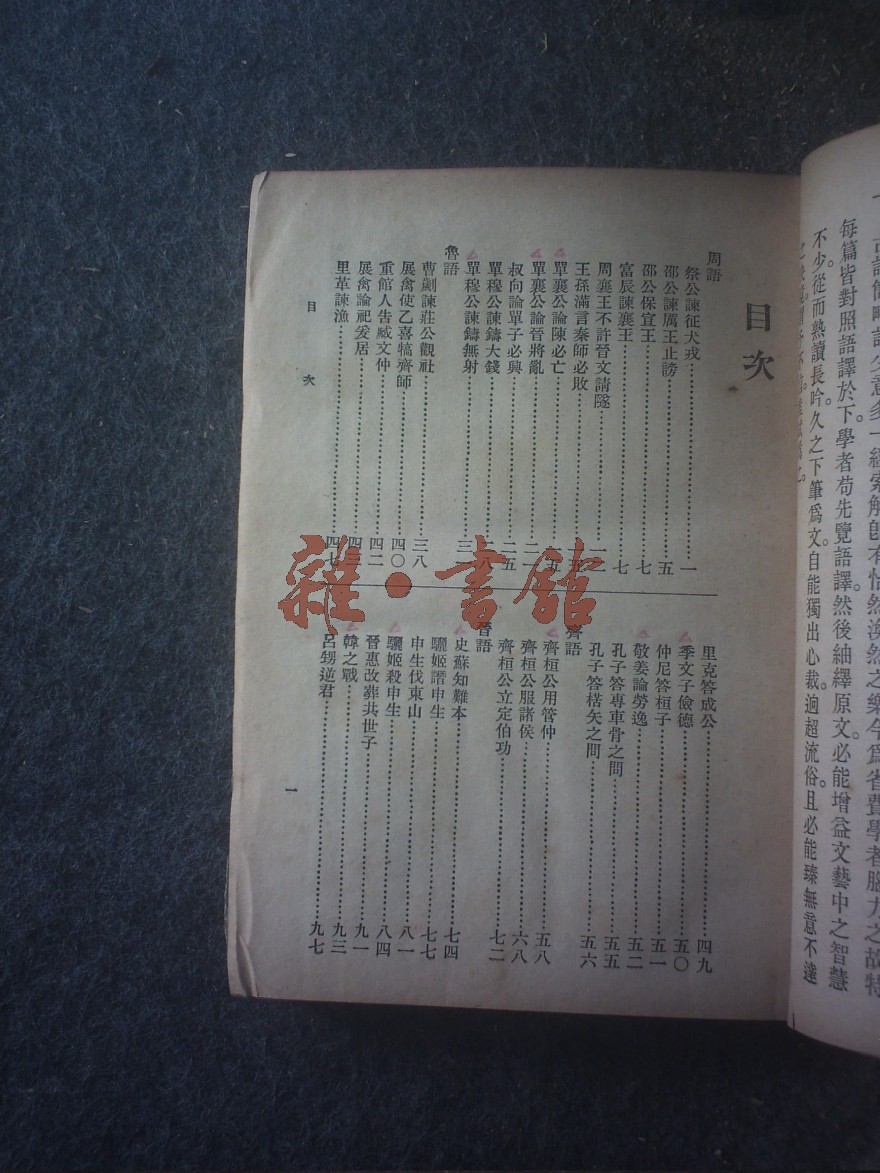 每篇皆對照語譯於下。學者苟先覽語譯。然後紬繹原文。必能增益文藝中之智慧
不少。從而熟讀長吟。久之下筆爲文。自能獨出心裁。逈超流俗。且必能臻無意不達
目次
周語
祭公諫征犬戎 一
邵公諫厲王止謗 五
邵公保宣王 七
富辰諫襄王 七
周襄王不許晉文請隧
王孫滿言秦師必敗
單襄公論陳必亡
單襄公論晉將亂 二一
叔向論單子必興 二五
單穆公諫鑄大錢
單穆公諫鑄無射
魯語
曹劌諫莊公觀社 三八
展禽使乙喜犒齊師 四〇
重館人告臧文仲 四二
展禽論祀爰居
里革諫漁 四七
里克答成公 四九
季文子儉德 五〇
仲尼答桓子 五一
敬姜論勞逸 五二
孔子答專車骨之問 五五
孔子答楛矢之問 五六
齊語
齊桓公用管仲 五八
齊桓公服諸侯 六八
齊桓公立定伯功 七二
晉語
史蘇知難本 七四
驪姬譖申生 七七
申生伐東山 八一
驪姬殺申生 八四
晉惠改葬共世子 九一
韓之戰 九三
呂甥逆君 九七
目次
一
雜·書館